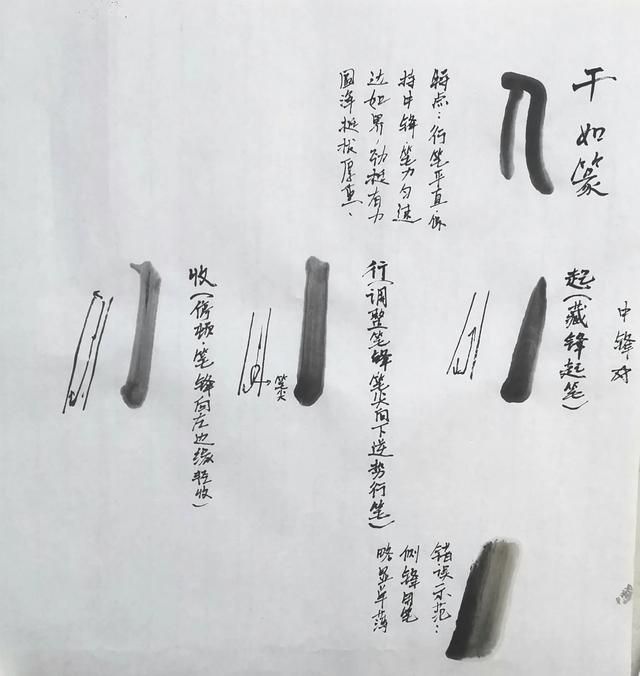 干如篆
特点：行笔平直，保
持中锋，笔力匀速
达如界，劲挺有力
圆浑挺拔厚重、
中锋对
起（藏锋起笔）
行（调整笔锋笔尖向下逆势行笔）
笔尖
收（停顿·笔锋向左边缘轻收）
错误示范：
侧锋用笔
略显单薄